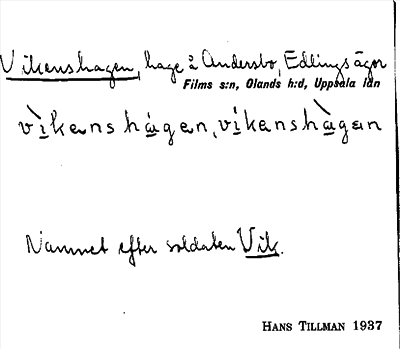 Vikenshagen, hage å Andersbo, Edlings ägor
Films s:n, Olands h:d, Uppsala län
vìkens hágen, víkenshàgen
Namnet efter soldaten Vik.
HANS TILLMAN 1937